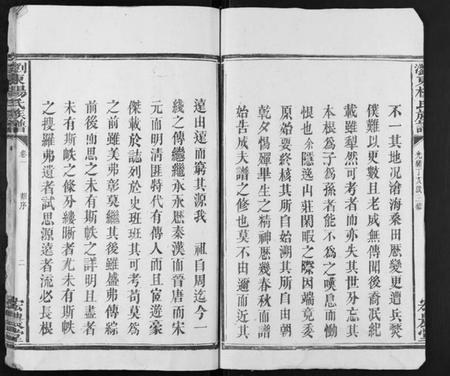 不一其地况滄海桑田歷變更遭兵燹
僕難以更數且老成無傳聞後裔冺紀
載雖犁然可考者而亦失其世分忘其
本根爲子爲孫者能不爲之嘆息而慟
恨也余隱逸山莊閑暇之際因端竟委
原始要終核其所自始溯其所自由朝
乾夕惕殫畢生之精神歷幾春秋而譜
始告成夫譜之修也莫不由邇而近其
遠由還而窮其源我 祖自周迄今一
綫之傳繼繼永永歷秦漢而晉唐而宋
元而明清匪特代有傳人而且宦遊豪
傑載於誌列於史班班其可考茍莫爲
之前雖美弗彰莫繼其後雖盛弗傳綜
前後而思之未有斯帙之詳明且盡者
未有斯帙之條分縷晰者尤未有斯帙
之搜羅弗遺者試思源遠者流必長根
瀏東楊氏族譜
卷一 新序 二